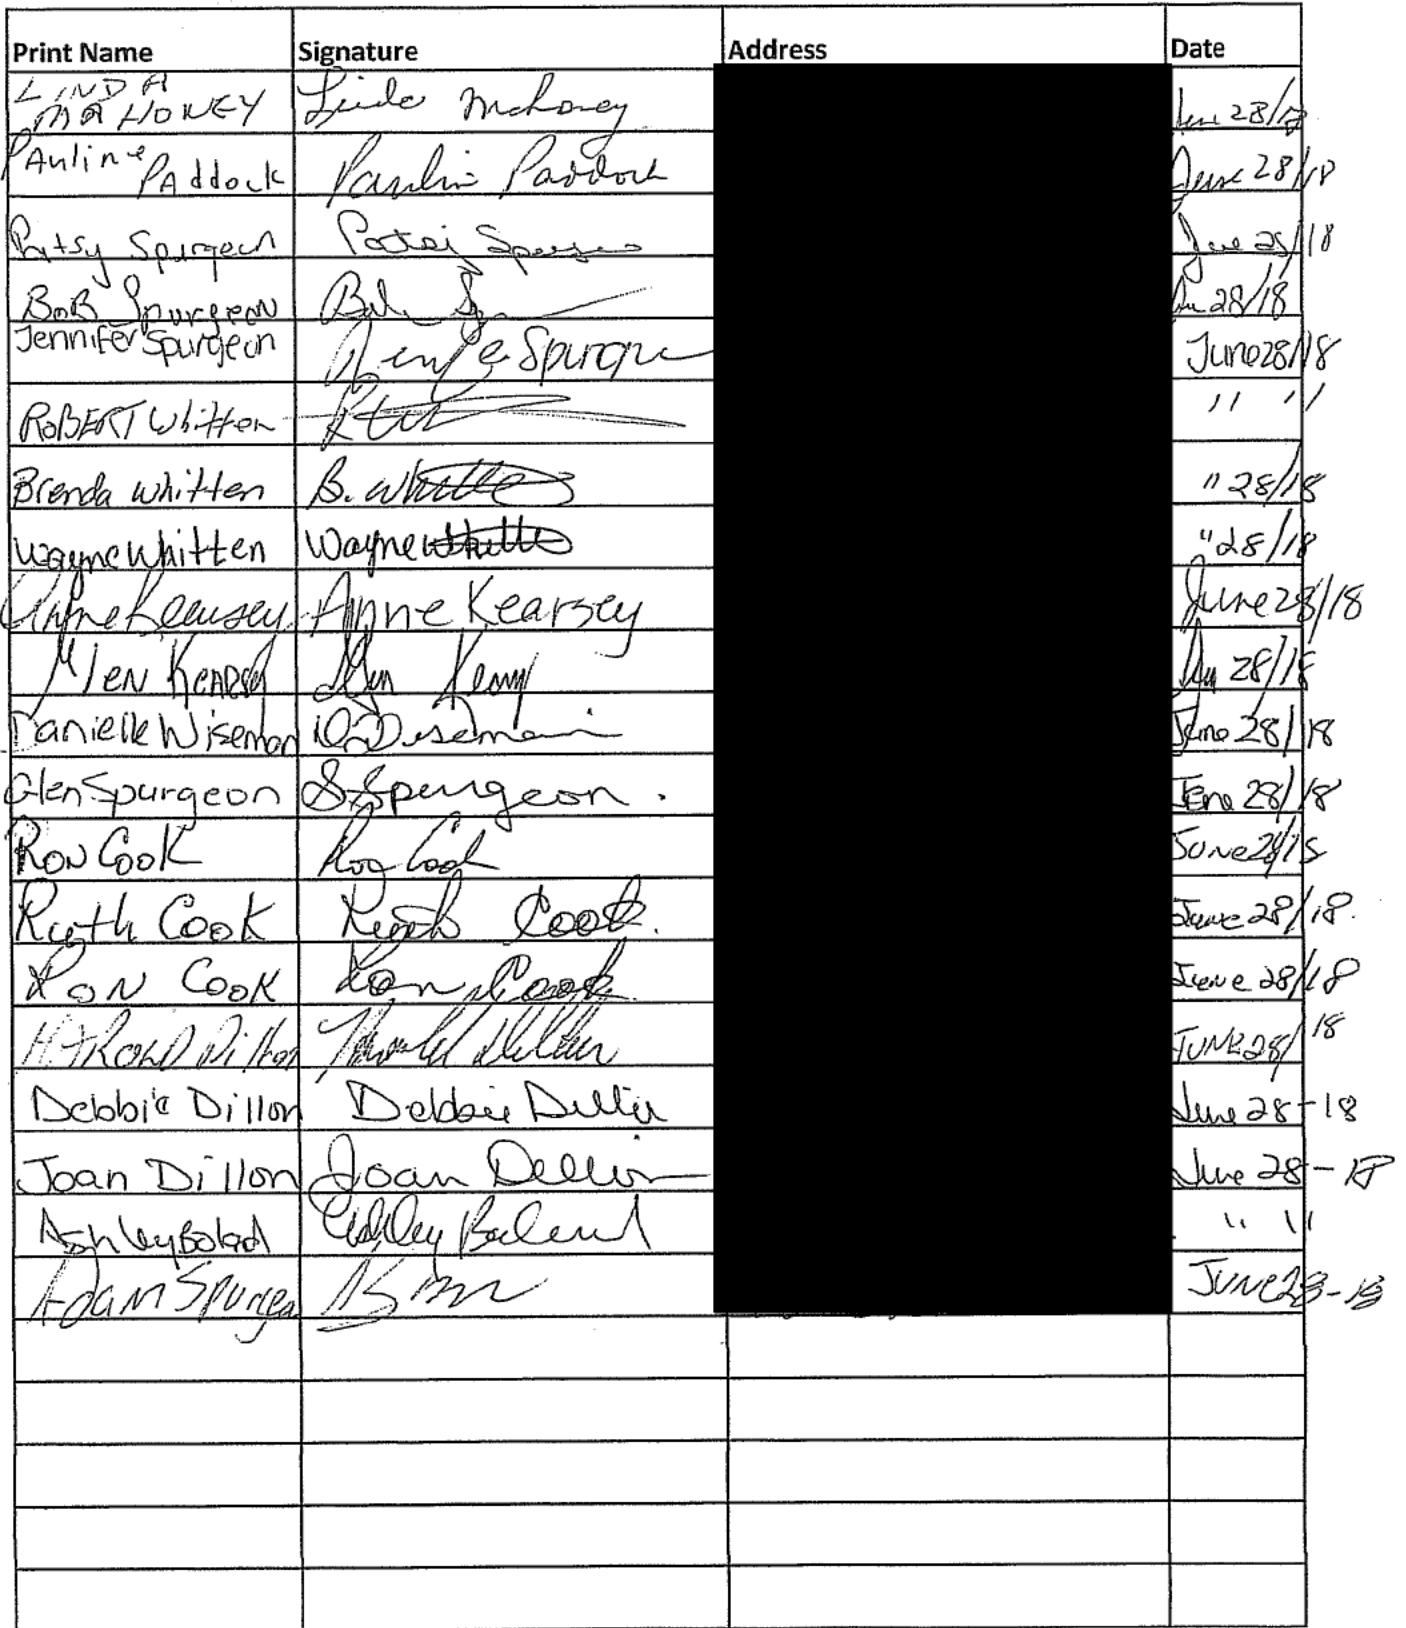 Print Name Signature Address Date
LINDA
MAHONEY Linda Mahoney June 28/18
Pauline
Paddock Pauline Paddock June 28/18
Patsy Spurgeon Patsy Spurgeon June 28/18
BoB Spurgeon Bob June 28/18
Jennifer Spurgeon Jennifer Spurgeon June 28/18
ROBERT Whitten " "
Brenda Whitten B. Whitten " 28/18
Wayne Whitten Wayne Whitten " 28/18
Anne Kearsey Anne Kearsey June 28/18
Kearsey Kearsey 28/18
Danielle Wiseman D Wiseman June 28/18
Glen Spurgeon G. Spurgeon. June 28/18
Ron Cook Ron Cook June 28/18
Ruth Cook Ruth Cook. June 28/18.
Ron Cook Ron Cook June 28/18
Dillon Harold Dillon June 28/18
Debbie Dillon Debbie Dillon June 28-18
Joan Dillon Joan Dillon June 28-18
Ashley Ashley " "
Adam Spurgeon June 28-18